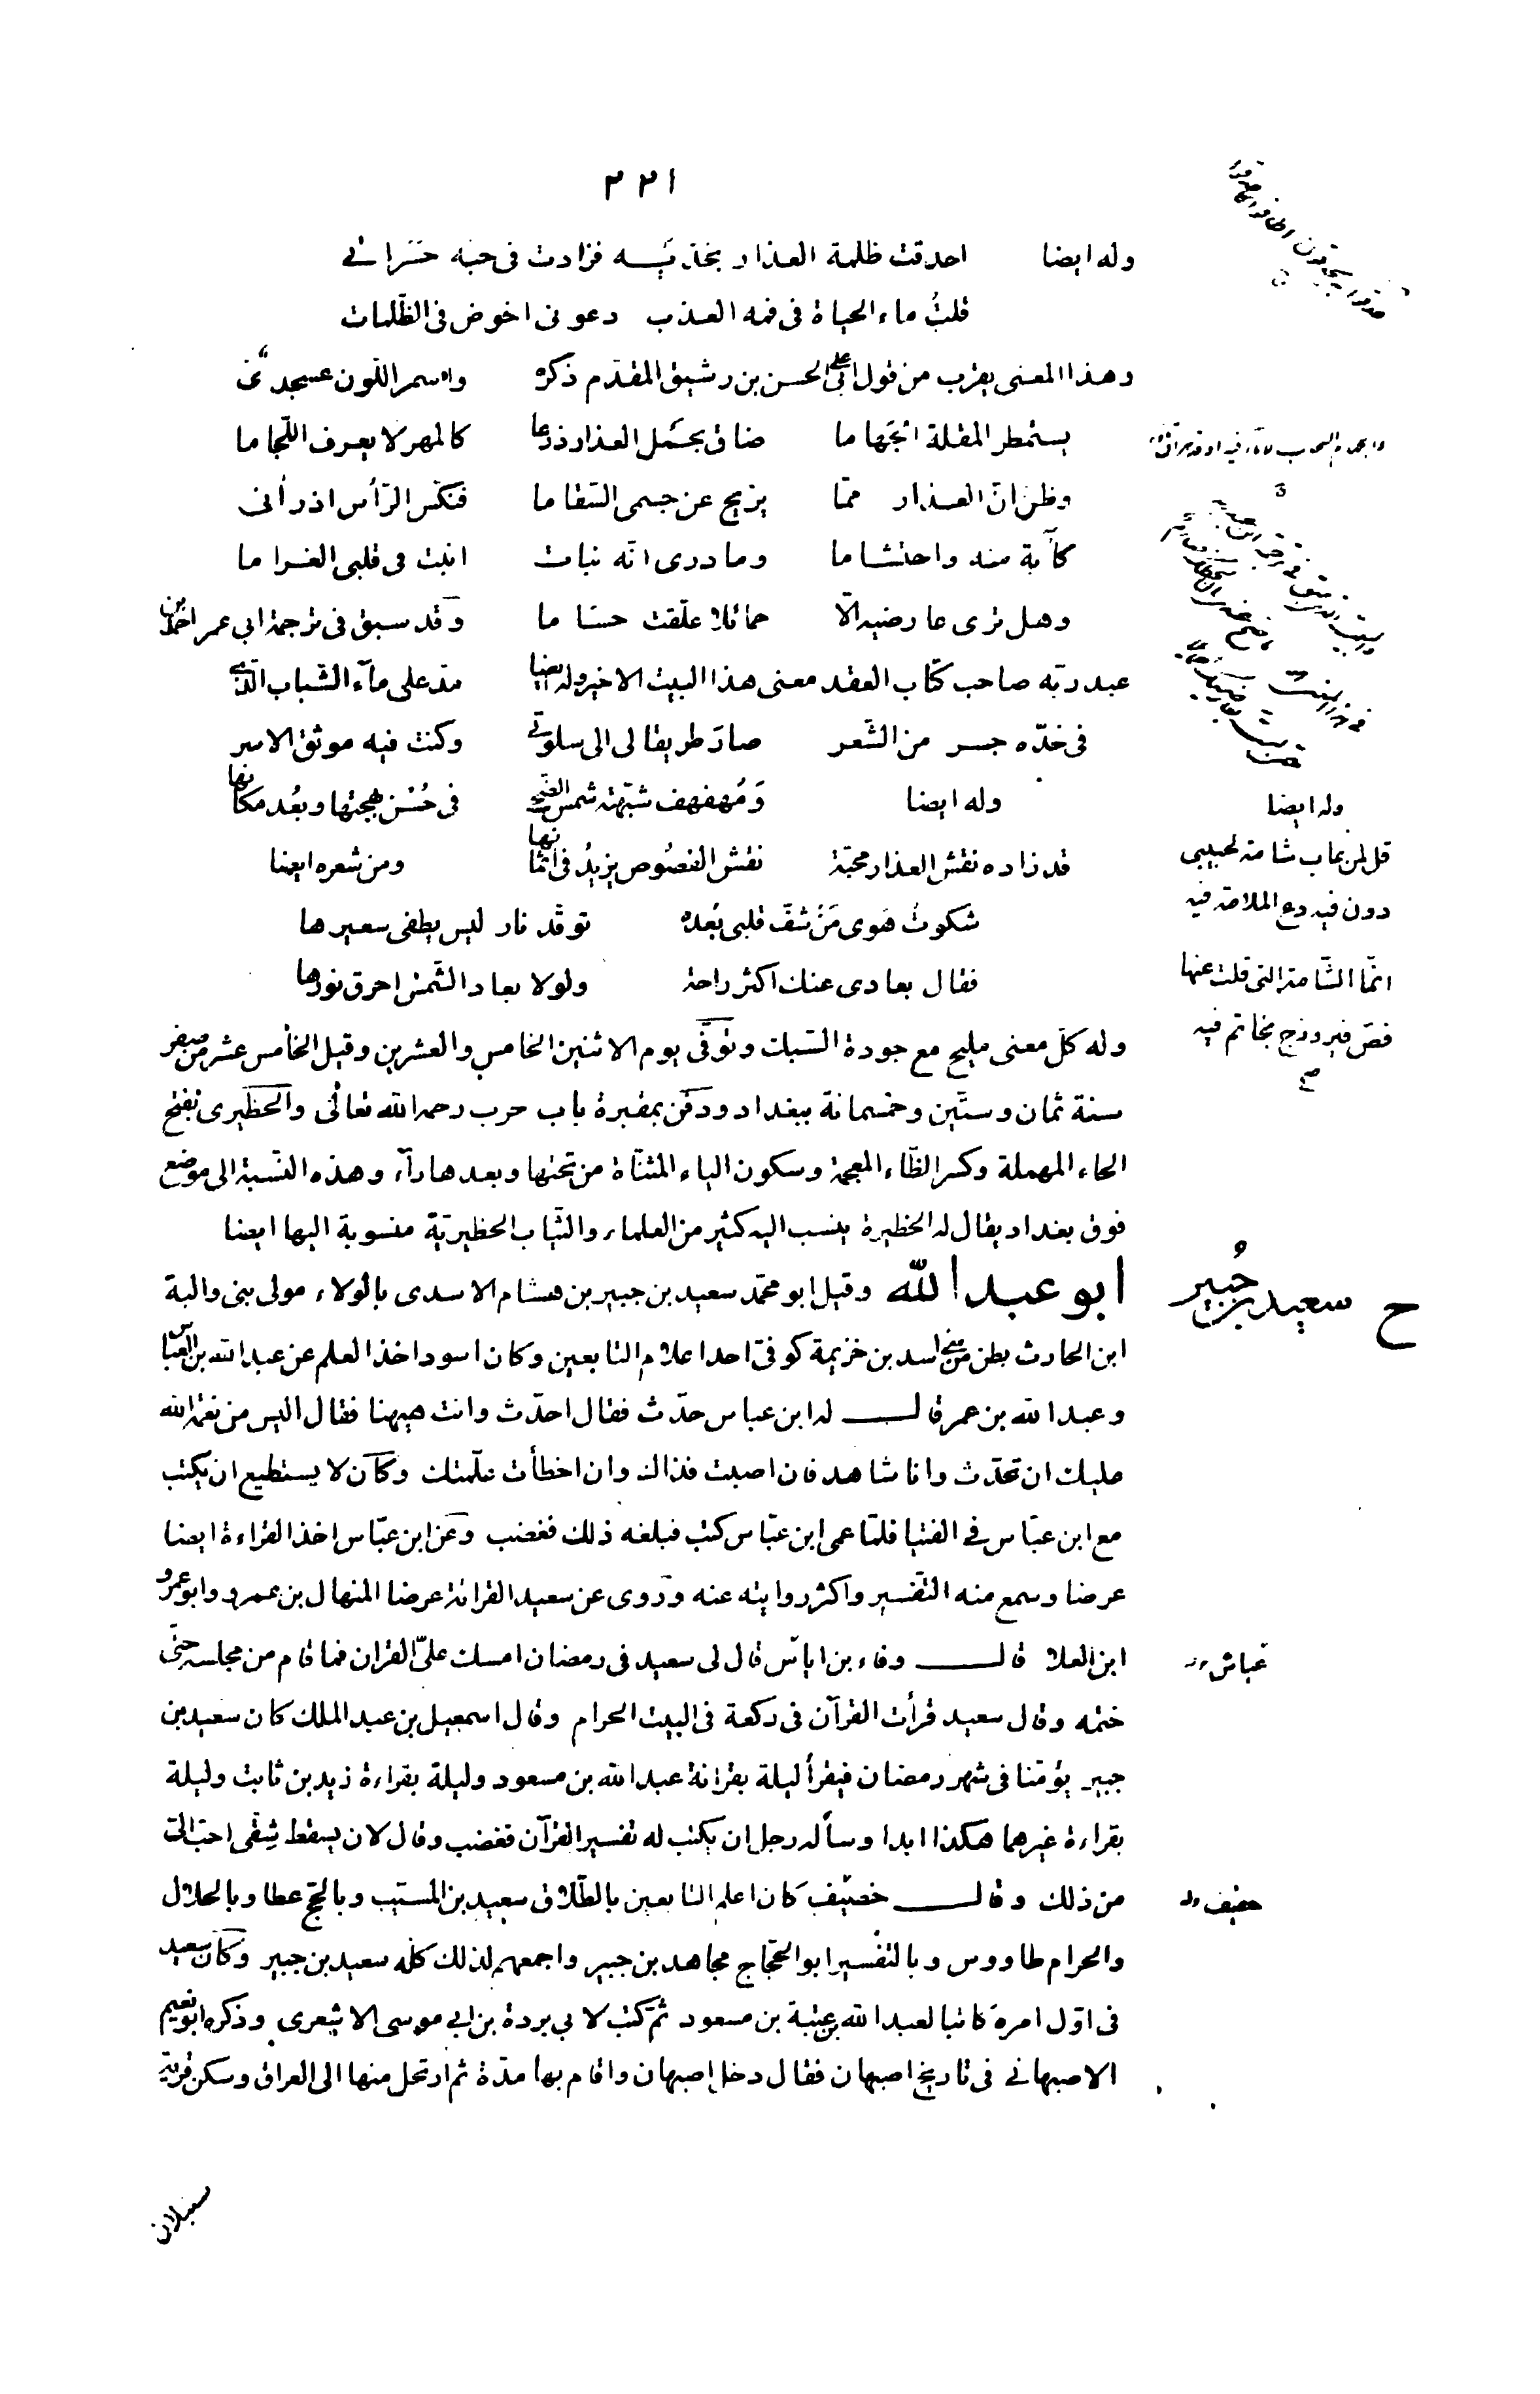 ٢٢١
وله ايضا احدقت ظلمة العذار بخدّيه فزادت فى حبّه حسراتى
قلتُ ماء الحياة فى فمه العذب دعونى اخوض فى الظّلمات
وهذا المعنى يقرب من قول ابى على الحسن بن رشيق المقدّم ذكره واسمر اللّون عسجدىّ
يستمطر المقلة الجهاما ضاق بحمل العذار ذرعا كالمهر لا يعرف اللّجاما
وظنّ انّ العذار ممّا يزيح عن جسمى السّقاما فنكّس الرّأس اذ رأنى
كآبة منه واحتشاما وما درى انّه نبات انبت فى قلبى الغراما
وهل ترى عارضيه الّا حمائلا علّقت حساما وقد سبق فى ترجمة ابى عمر احمد بن
عبد ربّه صاحب كتاب العقد معنى هذا البيت الاخير وله ايضا مدّ على مآء الشّباب الّذى
فى خدّه جسر من الشّعر صار طريقا لى الى سلوتى وكنت فيه موثق الاسر
وله ايضا وَمُهفهف شبّهته شمس الضّحى فى حُسْن بهجتها وبُعد مكانها
قد زاده نقش العذار محبّة نقش الفصُوص يزيدُ فى اثمانها ومن شعره ايضا
شكوتُ هَوى مَنْ شفّ قلبى بُعده توقّد نار ليس يطفى سعيرها
فقال بعادى عنك اكثر راحة ولولا بعاد الشّمس احرق نورها
وله كلّ معنى مليح مع جودة السّبك وتوفّى يوم الاثنين الخامس والعشرين وقيل الخامس عشر من صفر
سنة ثمان وستّين وخمسمائة ببغداد ودفن بمقبرة باب حرب رحمه الله تعالى والحظيرى بفتح
الحاء المهملة وكسر الظّاء المعجمة وسكون الياء المثنّاة من تحتها وبعدها رآء وهذه النّسبة الى موضع
فوق بغداد يقال له الحظيرة ينسب اليه كثير من العلماء والثّياب الحظيريّة منسوبة اليها ايضا
أبو عبد الله وقيل ابو محمّد سعيد بن جبير بن هشام الاسدى بالولاء مولى بنى والبة
ابن الحارث بطن من بنى اسد بن خزيمة كوفىّ احد اعلام التابعين وكان اسود اخذ العلم عن عبد الله بن العبّاس
وعبد الله بن عمر قال له ابن عباس حدّث فقال احدّث وانت هيهنا فقال اليس من نعمة الله
عليك ان تحدّث وانا شاهد فان اصبت فذاك وان اخطأت علّمتك وكان لا يستطيع ان يكتب
مع ابن عبّاس فى الفتيا فلمّا عمى ابن عبّاس كتب فبلغه ذلك فغضب وعن ابن عبّاس اخذ القراءة ايضا
عرضا وسمع منه التّفسير واكثر روايته عنه وروى عن سعيد القرائة عرضا المنهال بن عمرو وابو عمرو
ابن العلا قال وفاء بن اياس قال لى سعيد فى رمضان امسك علىّ القران فما قام من مجلسه حتّى
ختمه وقال سعيد قرأت القرآن فى ركعة فى البيت الحرام وقال اسمعيل بن عبد الملك كان سعيد بن
جبير يؤمّنا فى شهر رمضان فيقرأ ليلة بقرائة عبد الله بن مسعود وليلة بقراءة زيد بن ثابت وليلة
بقراءة غيرهما هكذا ابدا وسأله رجل ان يكتب له تفسير القرآن فغضب وقال لان يسقط شقّى احبّ الىّ
من ذلك وقال خصيّف كان اعلم التابعين بالطّلاق سعيد بن المسيّب وبالحجّ عطا وبالحلال
والحرام طاووس وبالتفسير ابو الحجّاج مجاهد بن جبير واجمعهم لذلك كلّه سعيد بن جبير وكان سعيد
فى اوّل امره كاتبا لعبد الله بن عتبة بن مسعود ثمّ كتب لابى بردة بن ابى موسى الاشعرى وذكره ابو نعيم
الاصبهانى فى تاريخ اصبهان فقال دخل اصبهان واقام بها مدّة ثم ارتحل منها الى العراق وسكن قرية
سنبلان
وله ايضا
قل لمن عاب شامة لحبيبى
دون فيه دع الملامة فيه
انّما الشّامة التى قلت عنها
فصّ فيروزج بخاتم فيه
صح
ح سعيد بن جُبير
عباس
خصيف